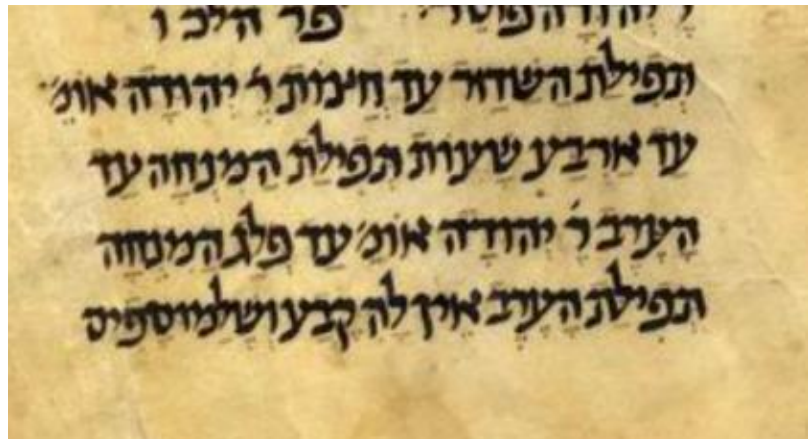 ר' יהודה פר הלכ ו
תפילת השחר עד חצות ר' יהודה אומ'
עד ארבע שעות תפילת המנחה עד
הערב ר' יהודה אומ' עד פלג המנחה
תפילת הערב אין לה קבע ושלמוספים